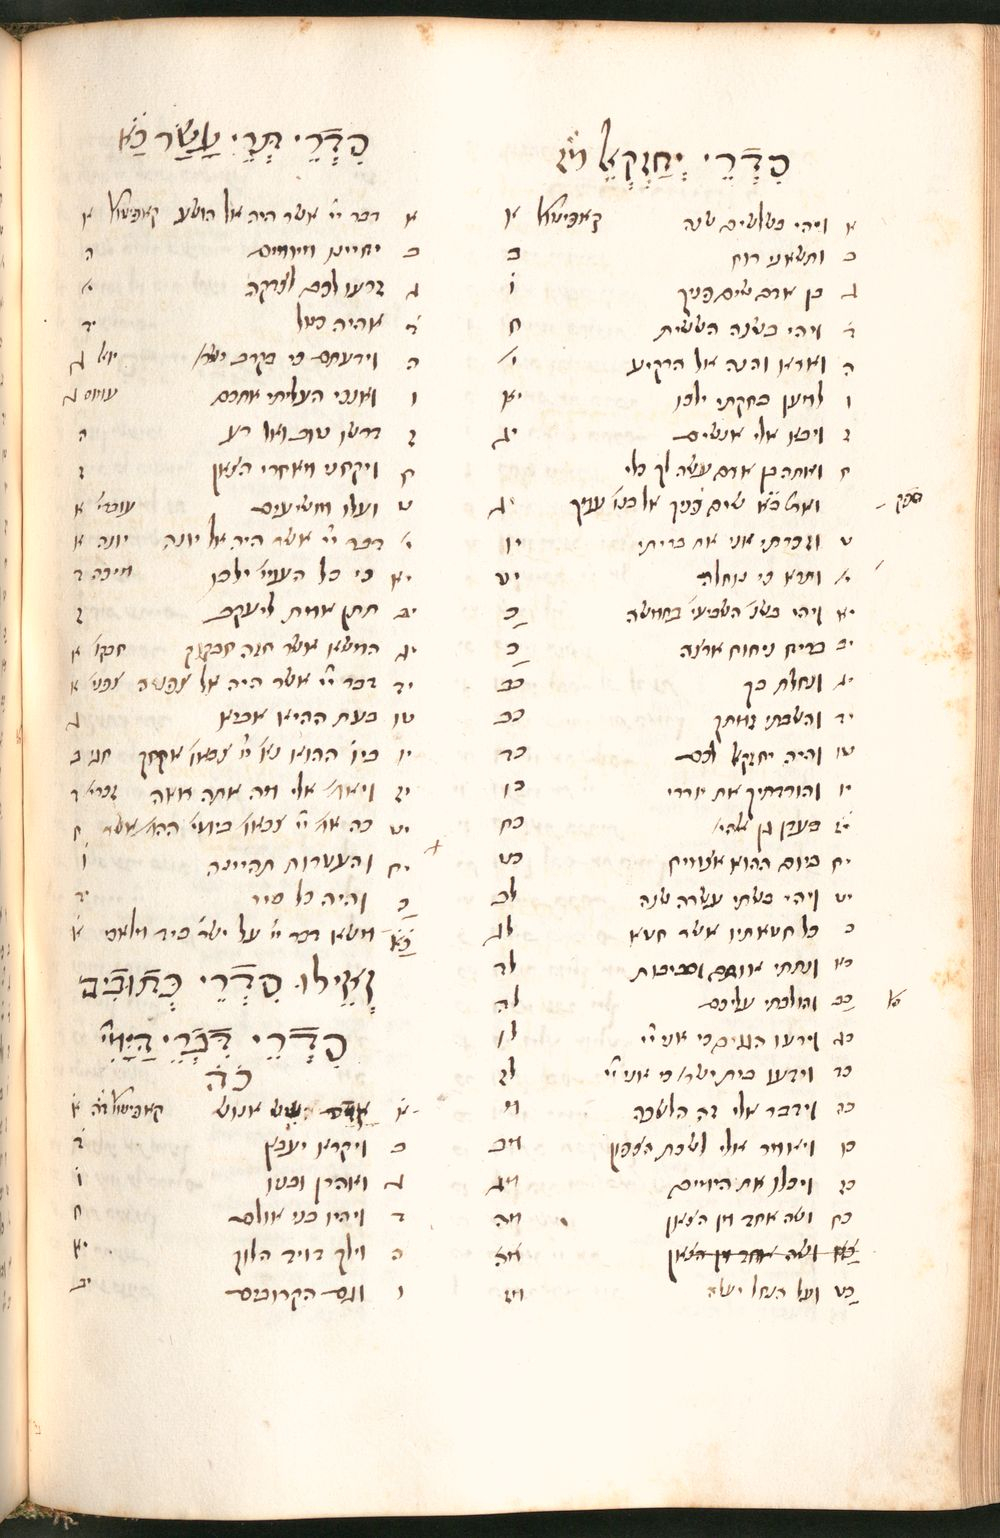 סִדְרֵי יְחֶזְקֵאל
א ויהי בשלשים שנה קאפיטול א
ב ותשאני רוח ב
ג בן אדם שים פניך ו
ד ויהי בשנה הששית ח
ה ואראו והנה אל הרקיע י
ו למען בחקתי ילכו יא
ז ויבאו אלי אנשים יג
ח ואתה בן אדם עשה לך כלי
ואתה שים פניך אל בנו' עמך יג
ט וזכרתי אני את בריתי יו
י ותרא כי נוחלה יט
יא ויהי בשנ' השביעי' בחמשה כ
יב בריח ניחוח ארצה כ
יג ונחלת בך כב
יד והשבתי זמתך כג
טו והיה יחזקאל לכם כד
יו והורדתיך את יורדי כו
יז בעדן גן אלהי' כח
יח ביום ההוא אצמיח כט
יט ויהי בשתי עשרה שנה לב
כ כל חטאתיו אשר חטא לג
כא ונתתי אותם וסביבות לד
כב והולכתי עליכם לה
כג וידעו הגוים כי אני יי לו
כד וידעו בית ישר' כי אני יי לז
כה וידבר אלי זה הלשכה מ
כו ויאמר אלי לשכת הצפון מב
כז ויכלו את הימים מג
כח ושה אחד מן הצאן מה
כא ושה אחד מן הצאן
כט ועל הנחל יעלה מז
סִדְרֵי תְּרֵי עֲשַׂר כֹא
א דבר יי אשר היה אל הושע קאפיטול א
ב יחיינו מיומים ה
ג זרעו לכם לצדקה י
ד אהיה כטל יד
ה וידעתם כי בקרב ישר' יואל ג
ו ואנכי העליתי אתכם עמוס ג
ז דרשו טוב ואל רע ה
ח ויקחני מאחרי הצאן ז
ט ועלו מושיעים עובדי' א
י דבר יי אשר היה אל יונה יונה א
יא כי כל העמי' ילכו מיכה ד
יב תתן אמת ליעקב ז
יג המשא אשר חזה חבקוק חבקו' א
יד דבר יי אשר היה אל צפניה צפני' א
טו בעת ההיא אביא ג
יו ביו' ההוא נא' יי צבאו' אקחך חגי ב
יז ויאמ' אלי מה אתה ראה זכרי' ד
יט כה אמ' יי צבאו' בימי' ההמ' אשר ח
יח והעטרות תהיינה ו
כ והיה כל סיר יד
כא משא דבר יי על ישר' ביד מלאכי א
וְאֵילוּ סִדְרֵי כְּתוּבִים
סִדְרֵי דִבְרֵי הַיָּמִי'
כֹה
א אדם שת אנוש קאפיטול דה א
ב ויקרא יעבץ ד
ג ואהרן ובניו ו
ד ויהיו בני אולם ח
ה וילך דויד הלוך יא
ו וגם הקרובים יב